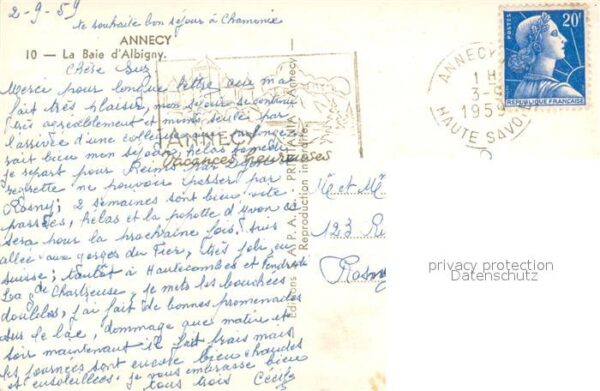 2-9-59
te souhaite bon séjour à Chamonix
ANNECY
10 - La Baie d'Albigny.
Chère Suz
Merci pour longue lettre qui m'a
fait très plaisir, mon séjour se continue
très agréablement et moins seule par
l'arrivée d'une collègue
bien mon séjour, hélas samedi
je repart pour Reims par Dijon
regrette ne pouvoir passer par
Rosny; 2 semaines sont bien vite
passées, hélas et la photo d'Yvon ce
sera pour la prochaine fois. Suis
allée aux gorges du Fier, très joli, en
Suisse; tantôt à Hautecombe et
La Gde Chartreuse, je mets les bouchées
doubles, j'ai fait de bonnes promenades
sur le lac, dommage que matin et
soir maintenant il fait frais mais
les journées sont encore bien chaudes
et ensoleillées. je vous embrasse bien
tous trois Cécile
ANNECY
Vacances heureuses
Editions A. P. A. Annecy
Reproduction interdite
POSTES
20F
REPUBLIQUE FRANÇAISE
ANNECY
1 H
3-9
1959
HAUTE SAVOIE
M. et M
123 R
Rosny
privacy protection
Datenschutz